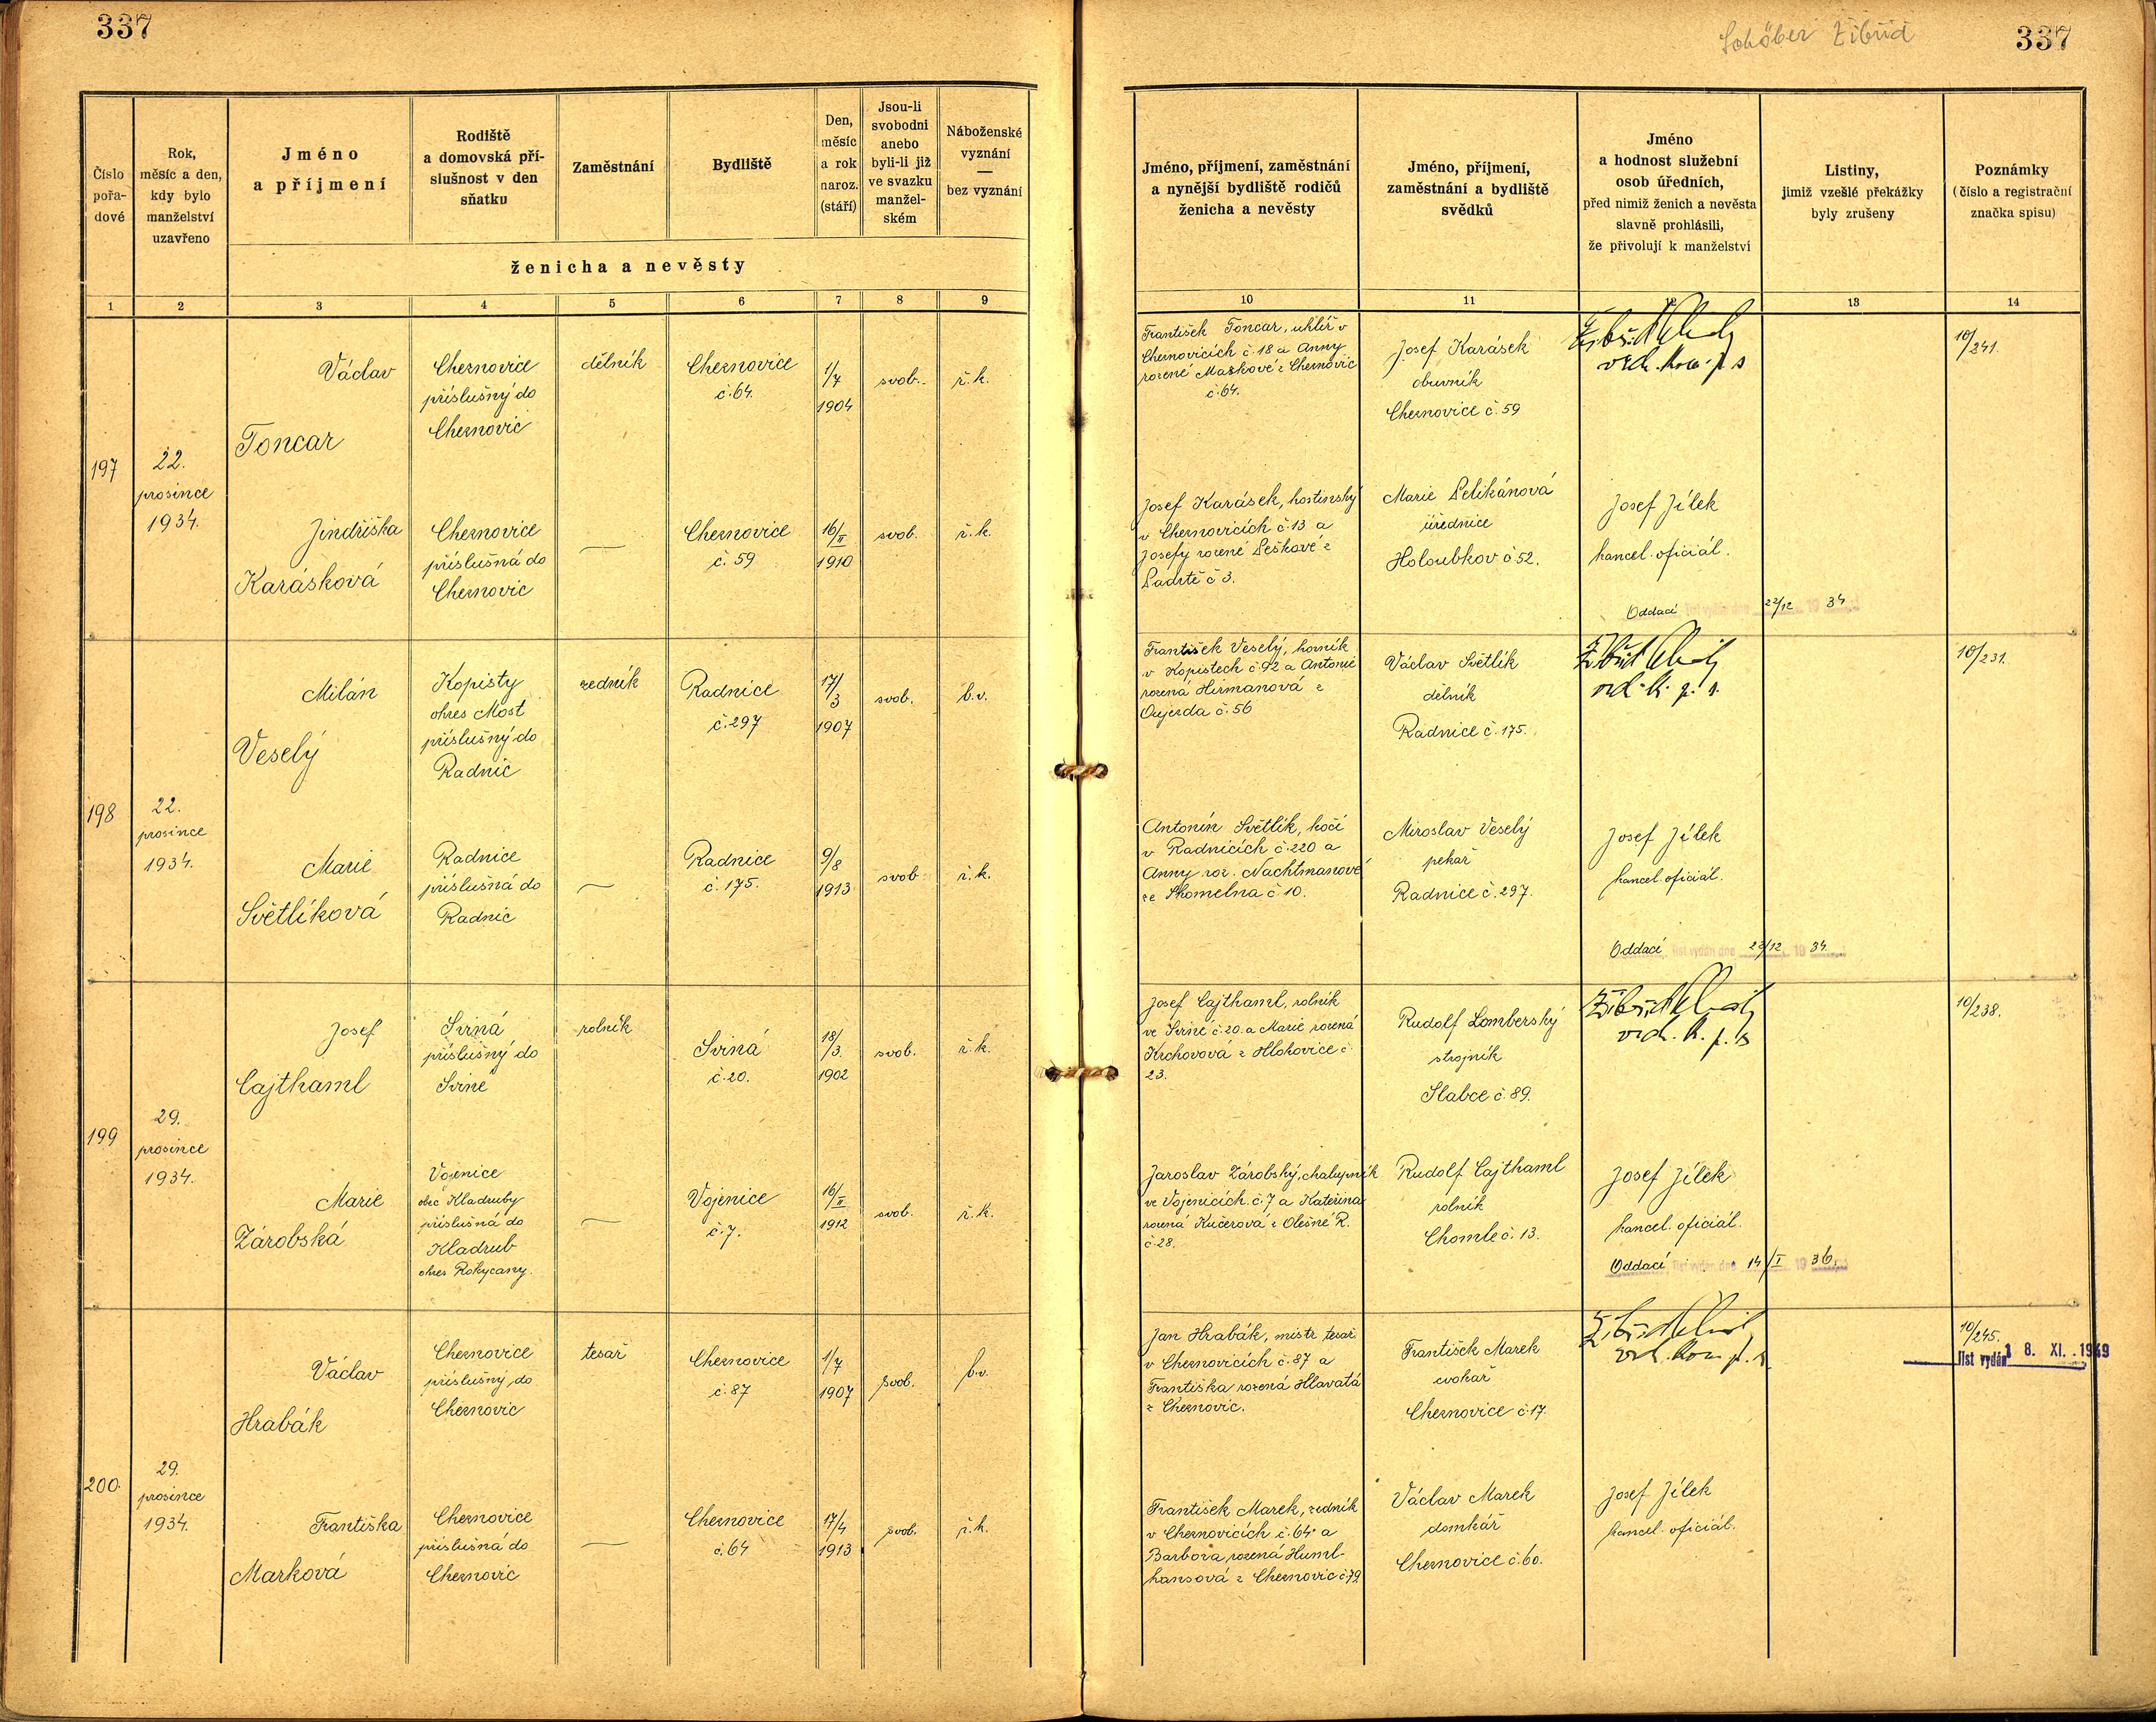 337
Schöber Žibřid
337
Číslo
pořa-
dové
Rok,
měsíc a den,
kdy bylo
manželství
uzavřeno
Jméno
a příjmení
Rodiště
a domovská pří-
slušnost v den
sňatku
Zaměstnání
Bydliště
Den,
měsíc
a rok
naroz.
(stáří)
Jsou-li
svobodni
anebo
byli-li již
ve svazku
manžel-
ském
Náboženské
vyznání
—
bez vyznání
ženicha a nevěsty
Jméno, příjmení, zaměstnání
a nynější bydliště rodičů
ženicha a nevěsty
Jméno, příjmení,
zaměstnání a bydliště
svědků
Jméno
a hodnost služební
osob úředních,
před nimiž ženich a nevěsta
slavně prohlásili,
že přivolují k manželství
Listiny,
jimiž vzešlé překážky
byly zrušeny
Poznámky
(číslo a registrační
značka spisu)
1 2 3 4 5 6 7 8 9 10 11 12 13 14
197
22.
prosince
1934.
Václav
Toncar
Chernovice
příslušný do
Chernovic
dělník
Chernovice
č. 64.
1/7
1904
svob.
ř. k.
František Toncar, uhlíř v
Chernovicích č. 18 a Anny
rozené Maškové z Chernovic
č. 64.
Josef Karásek
obuvník
Chernovice č 59
10/241.
Jindřiška
Karásková
Chernovice
příslušná do
Chernovic
—
Chernovice
č. 59
16/II
1910
svob.
ř. k.
Josef Karásek, hostinský
v Chernovicích č 13 a
Josefy rozené Peškové z
Padrtě č 3.
Marie Pelikánová
úřednice
Holoubkov č 52.
Josef Jílek
kancel. oficiál.
Oddací list vydán dne 22/12 1934
198
22.
prosince
1934.
Milán
Veselý
Kopisty
okres Most
příslušný do
Radnic
zedník
Radnice
č. 297
17/3
1907
svob.
b. v.
František Veselý, horník
v Kopistech č 92 a Antonie
rozená Heřmanová z
Oujezda č. 56
Václav Světlík
dělník
Radnice č. 175.
10/231.
Marie
Světlíková
Radnice
příslušná do
Radnic
—
Radnice
č. 175.
9/8
1913
svob.
ř. k.
Antonín Světlík, kočí
v Radnicích č. 220 a
Anny roz. Nachtmanové
ze Skomelna č. 10.
Miroslav Veselý
pekař
Radnice č. 297.
Josef Jílek
kancel. oficiál.
Oddací list vydán dne 22/12 1934.
199
29.
prosince
1934.
Josef
Cajthaml
Sviná
příslušný do
Sviné
rolník
Sviná
č. 20.
18/3.
1902
svob.
ř. k.
Josef Cajthaml, rolník
ve Sviné č. 20. a Marie rozená
Krchovová z Hlohovice č.
23.
Rudolf Lomberský
strojník
Slabce č. 89.
10/238.
Marie
Zárobská
Vojenice
obec Kladruby
příslušná do
Kladrub
okres Rokycany.
—
Vojenice
č. 7.
16/II
1912
svob.
ř. k.
Jaroslav Zárobský, chalupník
ve Vojenicích č. 7 a Kateřina
rozená Kučerová z Olešné R.
č. 28.
Rudolf Cajthaml
rolník
Chomle č. 13.
Josef Jílek
kancel. oficiál.
Oddací list vydán dne 14/I 1936.
200.
29.
prosince
1934.
Václav
Hrabák
Chernovice
příslušný do
Chernovic
tesař
Chernovice
č. 87
1/7
1907
svob.
b.v.
Jan Hrabák, mistr tesař.
v Chernovicích č. 87 a
Františka rozená Hlavatá
z Chernovic.
František Marek
cvokař
Chernovice č. 17.
10/245.
list vydán 18. XI. 1949
Františka
Marková
Chernovice
příslušná do
Chernovic
—
Chernovice
č. 64
17/4
1913
svob.
ř. k.
František Marek, zedník
v Chernovicích č. 64 a
Barbora rozená Huml-
hansová z Chernovic č. 79
Václav Marek
domkář
Chernovice č. 60.
Josef Jílek
kancel. oficiál.